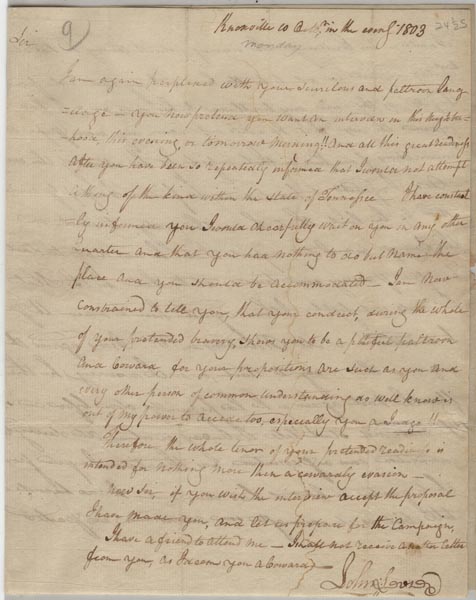 9
Knoxville 10 Octr. in the eveng 1803
Monday
Sir
I am again perplexed with your scurilous and poltroon lang
=uage — you now pretend you want an interview in this neighbo
=hood, this evening or tomorrow morning!! And all this great readiness
After you have been so repeatedly informed that I would not attempt
a thing of the kind within the state of Tennessee — I have constant
=ly informed you I would cheerfully wait on you in any other
quarter and that you had nothing to do but Name the
place and you should be accommodated — I am Now
constrained to tell you, that your conduct, during the whole
of your pretended bravery, shows you to be a pitiful poltroon
And Coward for your propositions are such as you and
every other person of common understanding do well know is
out of my power to accede too, especially you a Judge!!
Therefore the whole tenor of your pretended readiness is
intended for nothing more than a cowardly evasion —
Now Sir, if you wish the interview accept the proposal
I have made you, and let us prepare for the Campaign,
I have a friend to attend me — I shall not receive another letter
from you, as I deem you a Coward —
John Sevier